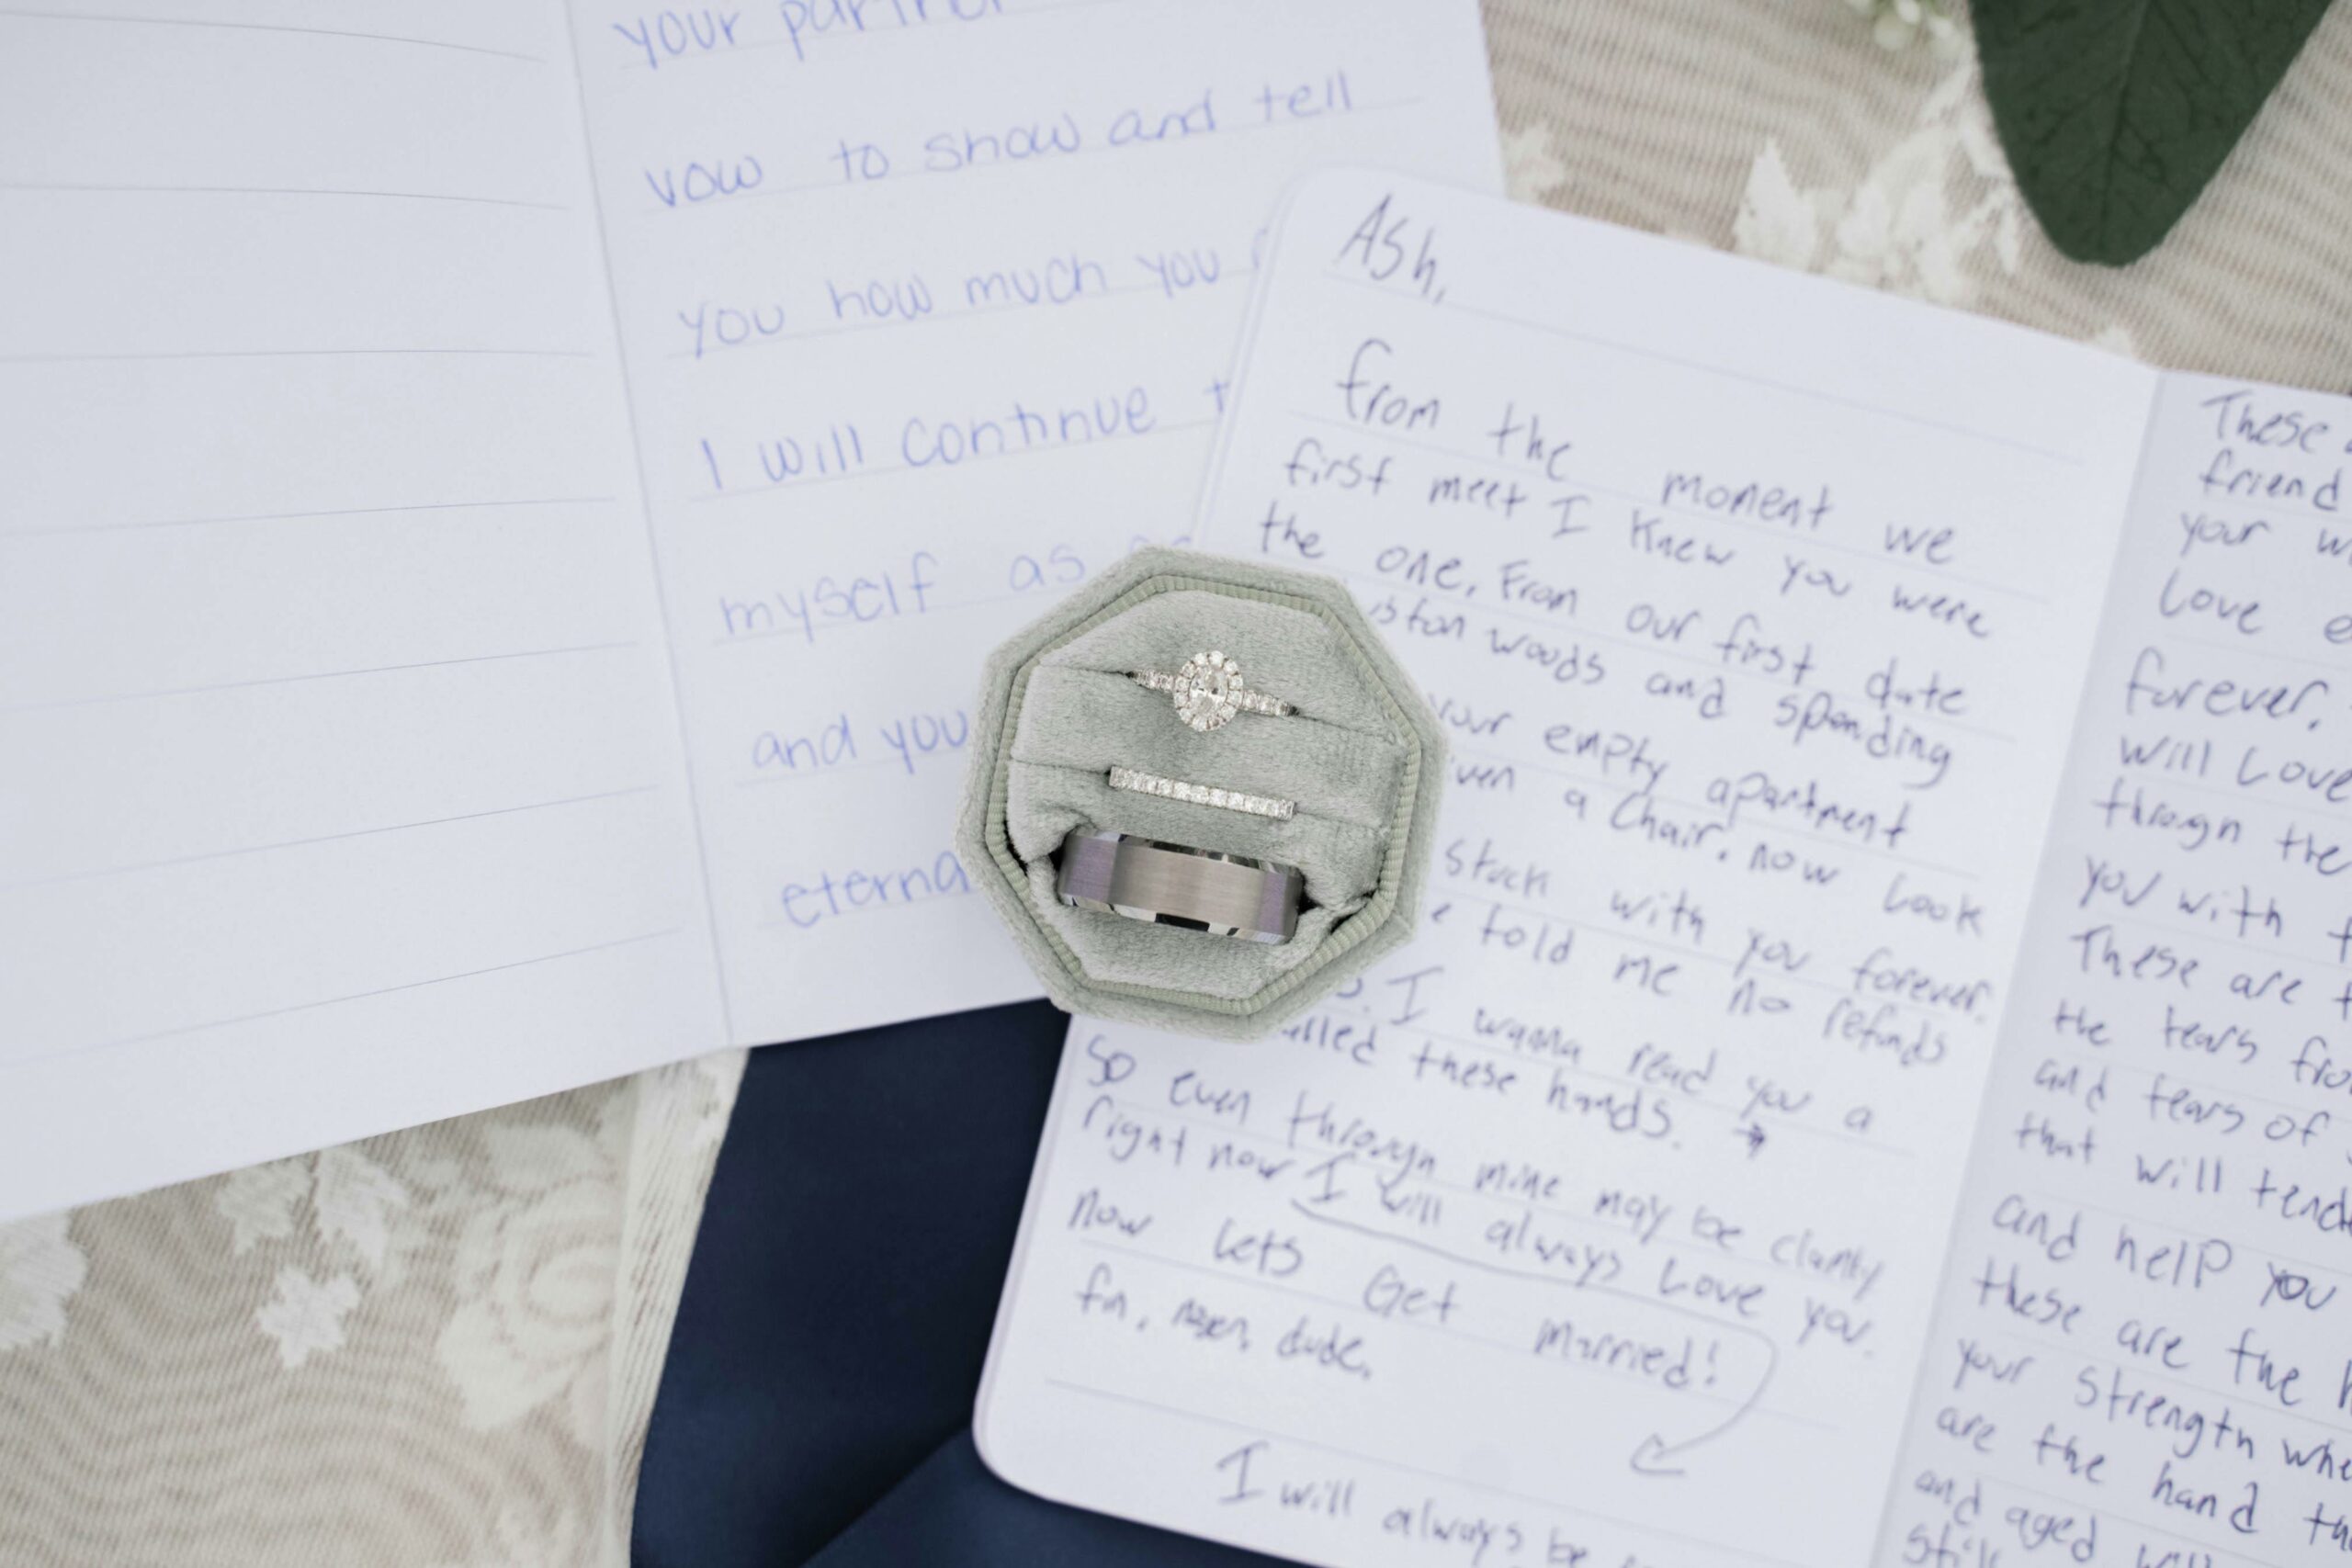 your partner
vow to show and tell
you how much you
I will continue
myself as
and you
eterna
Ash,
from the moment we
first meet I knew you were
the one. From our first date
ston woods and spending
your empty apartment
ven a Chair. now Look
stuck with you forever.
told me no refunds
I wanna read you a
alled these hands.
So even through mine may be clamy
right now I will always Love you.
now Lets Get married!
fin, dude.
I will always be
These
friend
your w
Love e
forever.
will Love
through the
you with f
These are t
the tears fro
and tears of
that will tend
and help you
these are the h
your Strength whe
are the hand th
and aged will
still